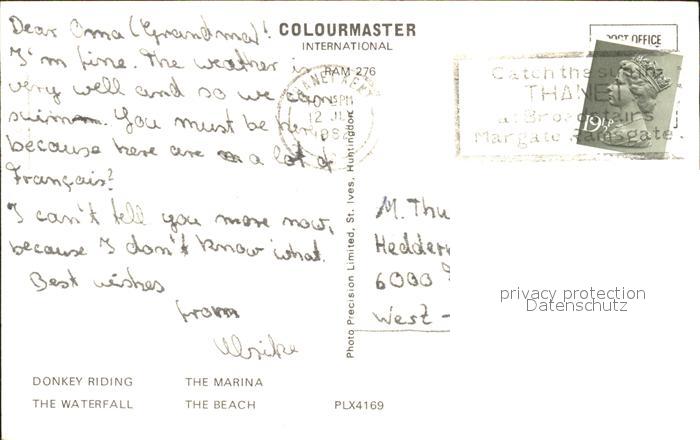 Dear Oma (Grandma)!
I'm fine. The weather is
very well and so we can
swim. You must be here
because here are a lot of
Français?
I can't tell you more now,
because I don't know what.
Best wishes
from
Ulrike
DONKEY RIDING THE MARINA
THE WATERFALL THE BEACH PLX4169
COLOURMASTER
INTERNATIONAL
RAM 276
Photo Precision Limited, St. Ives, Huntingdon
POST OFFICE
THANET KENT
PM
12 JL
Catch the sun in
THANET
at Broadstairs
Margate Ramsgate
19½P
M. Thu
Hedder
6000
West -
privacy protection
Datenschutz